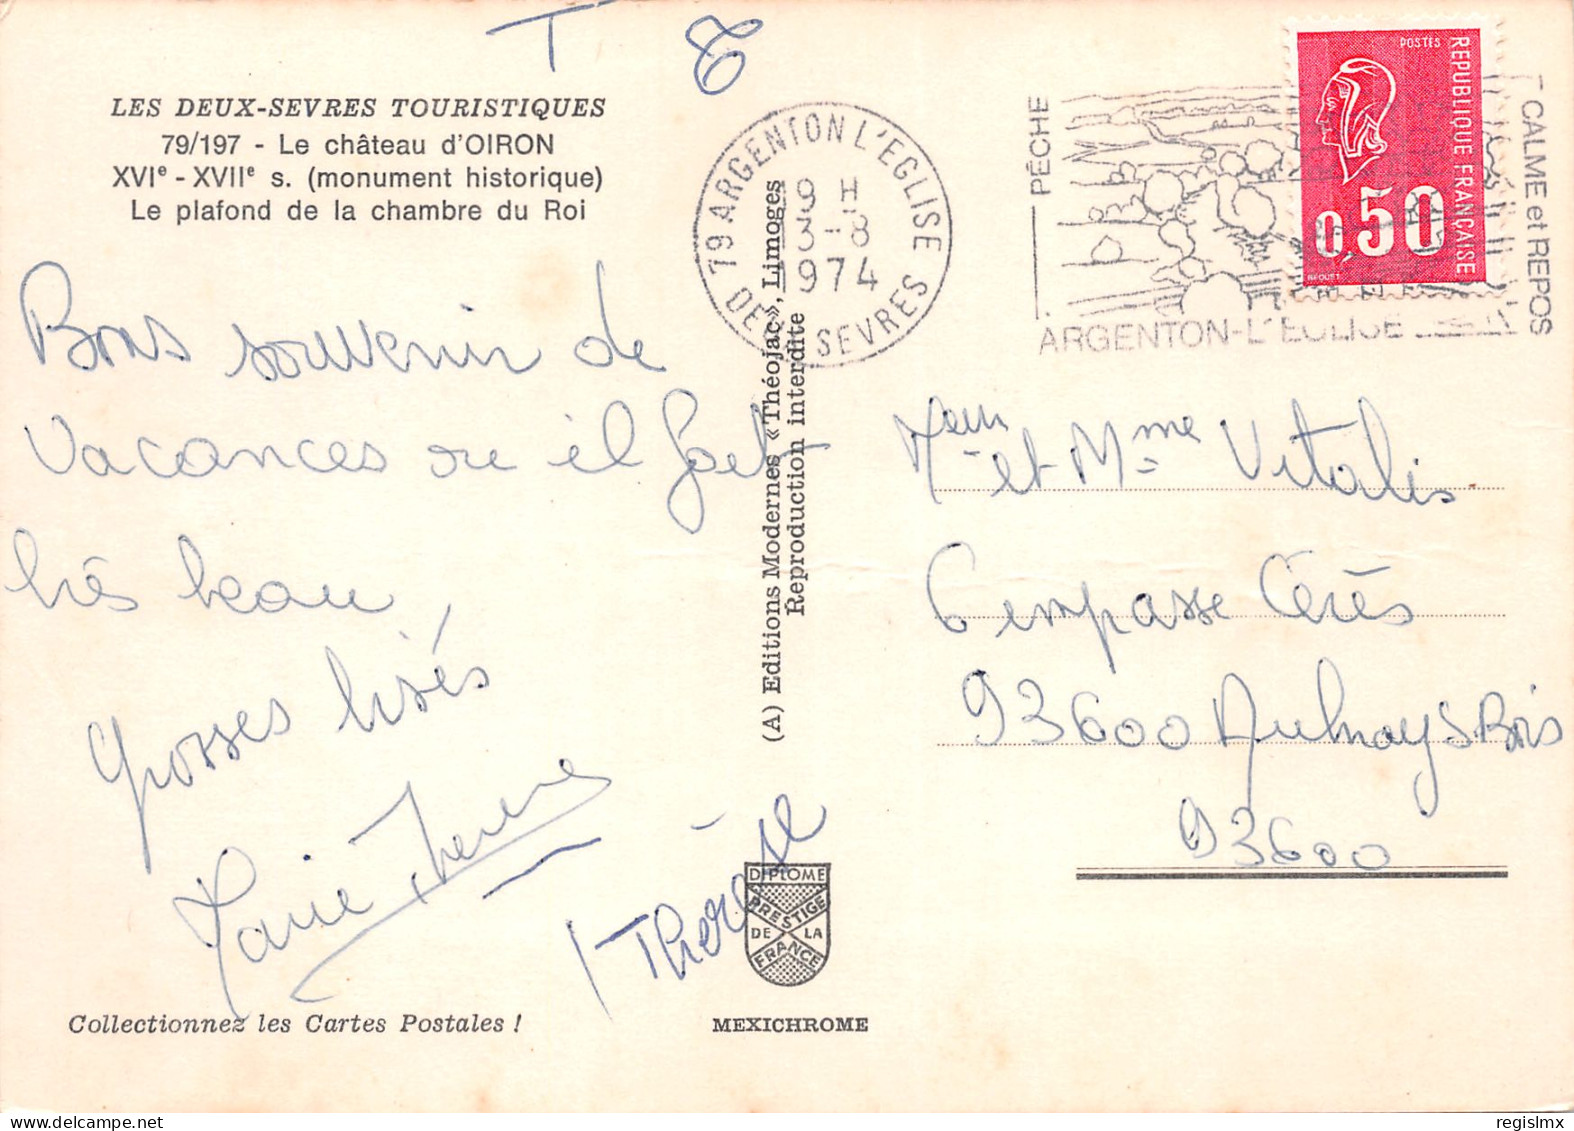 T T
LES DEUX-SEVRES TOURISTIQUES
79/197 - Le château d'OIRON
XVIe - XVIIe s. (monument historique)
Le plafond de la chambre du Roi
Bons souvenir de
Vacances ou il fait
très beau,
Grosses bises
Marie Thérèse
Thérèse
Collectionnez les Cartes Postales !
79 ARGENTON L'EGLISE
19 H
3-8
1974
DEUX SEVRES
(A) Editions Modernes « Théojac », Limoges
Reproduction interdite
DIPLOME
PRESTIGE
DE LA
FRANCE
MEXICHROME
PÊCHE
CALME et REPOS
ARGENTON-L'EGLISE
POSTES
REPUBLIQUE FRANÇAISE
0,50
BEQUET
et Mme Vitalis
6 impasse Cérès
93600 Aulnay S Bois
93600
regislmx